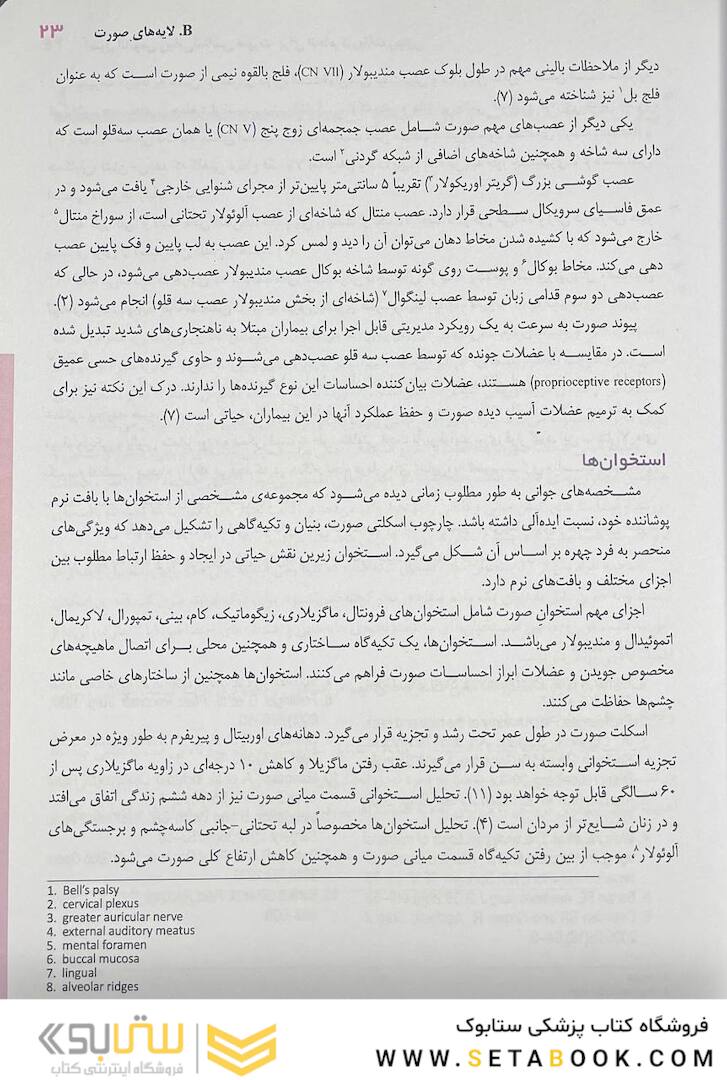 B. لایه‌های صورت ۲۳
دیگر از ملاحظات بالینی مهم در طول بلوک عصب مندیبولار (CN VII)، فلج بالقوه نیمی از صورت است که به عنوان
فلج بل۱ نیز شناخته می‌شود (۷).
یکی دیگر از عصب‌های مهم صورت شامل عصب جمجمه‌ای زوج پنج (CN V) یا همان عصب سه‌قلو است که
دارای سه شاخه و همچنین شاخه‌های اضافی از شبکه گردنی۲ است.
عصب گوشی بزرگ (گریتر اوریکولار۳) تقریباً ۵ سانتی‌متر پایین‌تر از مجرای شنوایی خارجی۴ یافت می‌شود و در
عمق فاسیای سرویکال سطحی قرار دارد. عصب منتال که شاخه‌ای از عصب آلوئولار تحتانی است، از سوراخ منتال۵
خارج می‌شود که با کشیده شدن مخاط دهان می‌توان آن را دید و لمس کرد. این عصب به لب پایین و فک پایین عصب
دهی می‌کند. مخاط بوکال۶ و پوست روی گونه توسط شاخه بوکال عصب مندیبولار عصب‌دهی می‌شود، در حالی که
عصب‌دهی دو سوم قدامی زبان توسط عصب لینگوال۷ (شاخه‌ای از بخش مندیبولار عصب سه قلو) انجام می‌شود (۲).
پیوند صورت به سرعت به یک رویکرد مدیریتی قابل اجرا برای بیماران مبتلا به ناهنجاری‌های شدید تبدیل شده
است. در مقایسه با عضلات جونده که توسط عصب سه قلو عصب‌دهی می‌شوند و حاوی گیرنده‌های حسی عمیق
(proprioceptive receptors) هستند، عضلات بیان‌کننده احساسات این نوع گیرنده‌ها را ندارند. درک این نکته نیز برای
کمک به ترمیم عضلات آسیب دیده صورت و حفظ عملکرد آنها در این بیماران، حیاتی است (۷).
استخوان‌ها
مشخصه‌های جوانی به طور مطلوب زمانی دیده می‌شود که مجموعه‌ی مشخصی از استخوان‌ها با بافت نرم
پوشاننده خود، نسبت ایده‌آلی داشته باشد. چارچوب اسکلتی صورت، بنیان و تکیه‌گاهی را تشکیل می‌دهد که ویژگی‌های
منحصر به فرد چهره بر اساس آن شکل می‌گیرد. استخوان زیرین نقش حیاتی در ایجاد و حفظ ارتباط مطلوب بین
اجزای مختلف و بافت‌های نرم دارد.
اجزای مهم استخوان صورت شامل استخوان‌های فرونتال، ماگزیلاری، زیگوماتیک، کام، بینی، تمپورال، لاکریمال،
اتموئیدال و مندیبولار می‌باشد. استخوان‌ها، یک تکیه‌گاه ساختاری و همچنین محلی برای اتصال ماهیچه‌های
مخصوص جویدن و عضلات ابراز احساسات صورت فراهم می‌کنند. استخوان‌ها همچنین از ساختارهای خاصی مانند
چشم‌ها حفاظت می‌کنند.
اسکلت صورت در طول عمر تحت رشد و تجزیه قرار می‌گیرد. دهانه‌های اوربیتال و پیریفرم به طور ویژه در معرض
تجزیه استخوانی وابسته به سن قرار می‌گیرند. عقب رفتن ماگزیلا و کاهش ۱۰ درجه‌ای در زاویه ماگزیلاری پس از
۶۰ سالگی قابل توجه خواهد بود (۱۱). تحلیل استخوانی قسمت میانی صورت نیز از دهه ششم زندگی اتفاق می‌افتد
و در زنان شایع‌تر از مردان است (۴). تحلیل استخوان‌ها مخصوصاً در لبه تحتانی-جانبی کاسه‌چشم و برجستگی‌های
آلوئولار۸، موجب از بین رفتن تکیه‌گاه قسمت میانی صورت و همچنین کاهش ارتفاع کلی صورت می‌شود.
1. Bell's palsy
2. cervical plexus
3. greater auricular nerve
4. external auditory meatus
5. mental foramen
6. buccal mucosa
7. lingual
8. alveolar ridges
فروشگاه کتاب پزشکی ستابوک
WWW.SETABOOK.COM
ستابوک
فروشگاه اینترنتی کتاب